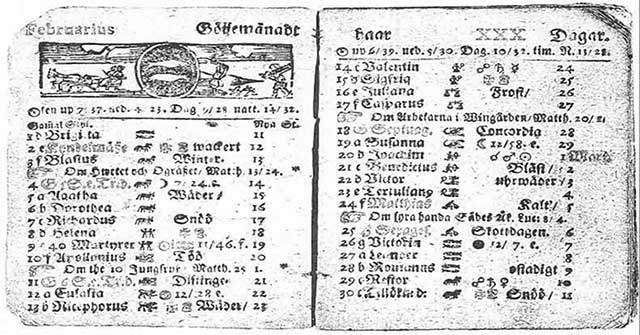 Februarius Göijemånadt
☉ nen up 7/37. ned. 4/23. Dag 9/28 natt. 14/32.
Gamat Styl. Nya St.
1 d Brigitta 11
2 e Kyndelmässe wackert 12
3 f Blasius Winter. 13
Om Hwetet och Ogräset/ Matth. 13/24.
4 G 5 S. e. Tr. d. ☽ 7/24. 14
5 a Agatha Wäder/ 15
6 b Dorothea 16
7 c Richardus Snöö 17
8 d Helena 18
9 e 40 Martyrer 11/46. f. 19
10 f Apollonius Töö 20
Om the 10 Jungfrur Matth. 25 1.
11 G 6 S. e. T. d. Distinge 21
12 a Eulalia 12/28 e. 22
13 b Nicephorus Wäder/ 23
haar XXX Dagar.
☉ up 6/39. ned. 5/30. Dag. 10/32. tim. N. 13/28.
14 c Valentin ♂ ♄ ☿ 24
15 d Sigfrid 25
16 e Juliana Frost/ 26
17 f Casparus 27
Om Arbetarna i Wingården/ Matth. 20/1.
18 G Septuag. Concordia 28
19 a Susanna ☾ 12/58. e. 29
20 b Joachim 1 Mart.
21 c Benedictus Blåst/ 2
22 d Victor uhrwäder/ 3
23 e Tertulianj 4
24 f Matthias Kalt/ 5
Om fyra handa Sädes Åk. Luc. 8/4.
25 G Sexages. Stottdagen. 6
26 g Victorin ● 12/7. e. 7
27 a Leander 8
28 b Romanus ostadigt 9
29 c Nestor 10
30 c Snöö/ 11